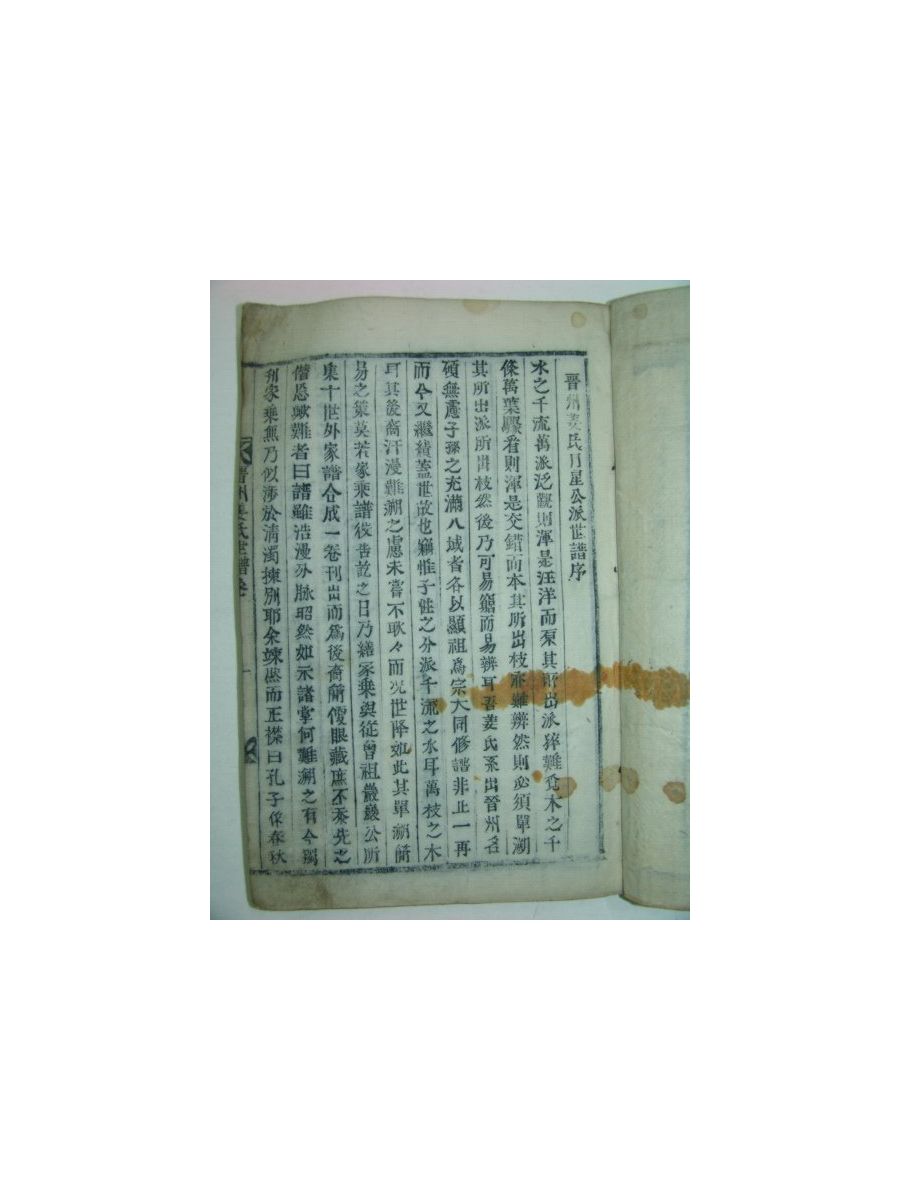 晉州姜氏月星公派世譜序
水之千流萬派泛觀則渾是汪洋而泵其所出派猝難䆒木之千
條萬葉驟看則渾是交錯而本其所出枝亦難辨然則必須單溯
其所出派所出枝然後乃可易竆而易辨耳吾姜氏系出晉州名
碩無慮子孫之充滿八域者各以顯祖爲宗大同修譜非止一再
而今又繼續蓋世故也竊惟子姓之分派千流之水耳萬枝之木
耳其後裔汗漫難溯之慮未嘗不耿々而况世降如此其單溯簡
易之策莫若家乘譜役告訖之日乃繕家乘與從曾祖巖公所
集十世外家譜合成一卷刊出而爲後裔簡便眼藏庶不忝先之
僭恐歟難者曰譜雖浩漫外脉昭然如示諸掌何難溯之有今獨
刊家乘無乃似涉於清濁揀別耶余竦然而正襟曰孔子修春秋
晋州姜氏世譜卷一